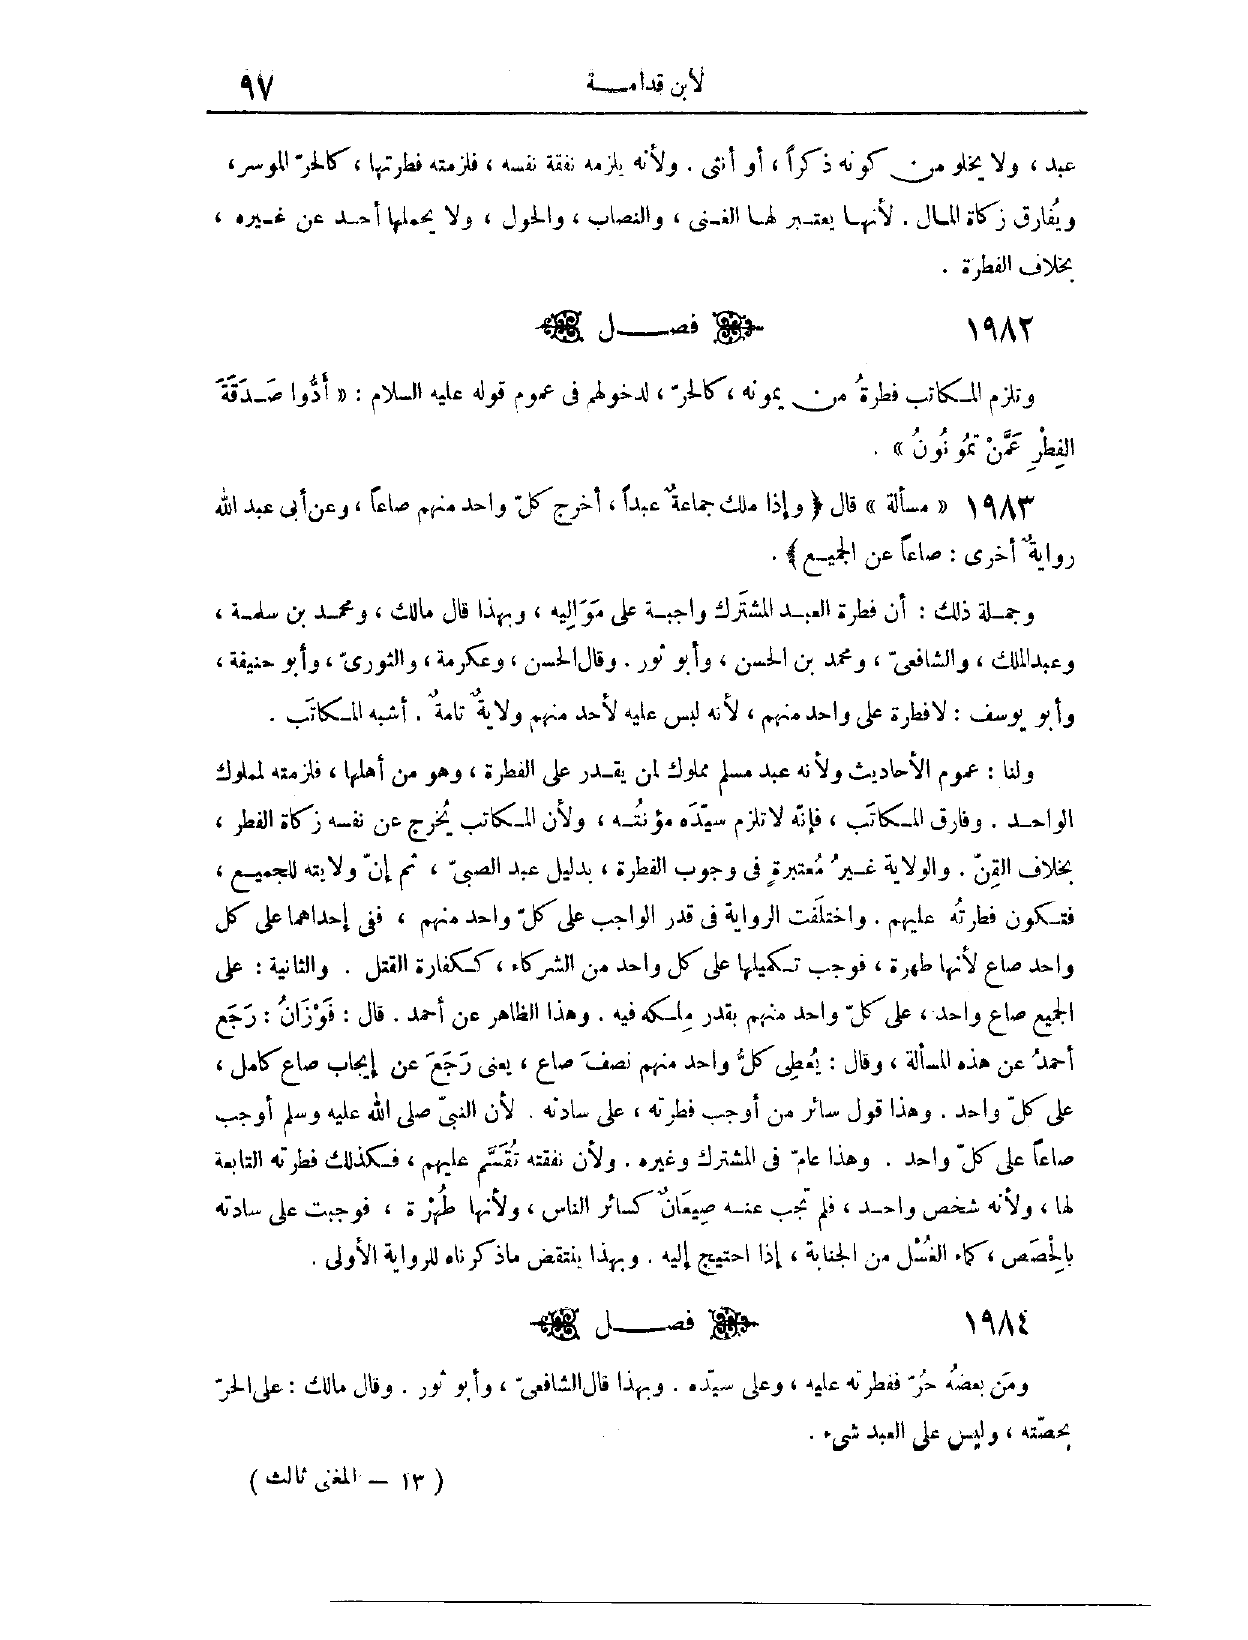 لابن قدامة ٩٧
عبد ، ولا يخلو من كونه ذكراً ، أو أنثى . ولأنه يلزمه نفقة نفسه ، فلزمته فطرتها ، كالحرّ الموسر ،
ويُفارق زكاة المال . لأنها يعتبر لها الغنى ، والنصاب ، والحول ، ولا يحملها أحد عن غيره ،
بخلاف الفطرة .
١٩٨٢ فصل
وتلزم المكاتب فطرةُ من يمونه ، كالحرّ ، لدخولهم فى عموم قوله عليه السلام : « أَدُّوا صَدَقَةَ
الفِطْرِ عَمَّنْ تَمُونُونُ » .
١٩٨٣ « مسألة » قال ﴿ وإذا ملك جماعةٌ عبداً ، أخرج كلّ واحد منهم صاعاً ، وعن أبى عبد الله
روايةٌ أخرى : صاعاً عن الجميع ﴾ .
وجملة ذلك : أن فطرة العبد المشتَرك واجبة على مَوَالِيه ، وبهذا قال مالك ، ومحمد بن سلمة ،
وعبدالملك ، والشافعىّ ، ومحمد بن الحسن ، وأبو ثور . وقال الحسن ، وعكرمة ، والثورىّ ، وأبو حنيفة ،
وأبو يوسف : لافطرة على واحد منهم ، لأنه ليس عليه لأحد منهم ولايةٌ تامةٌ . أشبه المكاتَب .
ولنا : عموم الأحاديث ولأنه عبد مسلم مملوك لمن يقدر على الفطرة ، وهو من أهلها ، فلزمته لمملوك
الواحد . وفارق المكاتَب ، فإنّه لاتلزم سيّدَه مؤنتُه ، ولأن المكاتب يُخرج عن نفسه زكاة الفطر ،
بخلاف القِنّ . والولاية غيرُ مُعتبرةٍ فى وجوب الفطرة ، بدليل عبد الصبىّ ، ثم إنّ ولايته للجميع ،
فتكون فطرتُه عليهم . واختلَفت الرواية فى قدر الواجب على كلّ واحد منهم ، ففى إحداهما على كل
واحد صاع لأنها طهرة ، فوجب تكميلها على كل واحد من الشركاء ، ككفارة القتل . والثانية : على
الجميع صاع واحد ، على كلّ واحد منهم بقدر مِلكه فيه . وهذا الظاهر عن أحمد . قال : فَوْزَانُ : رَجَع
أحمدُ عن هذه المسألة ، وقال : يُعطِى كلُّ واحد منهم نصفَ صاع ، يعنى رَجَعَ عن إيجاب صاع كامل ،
على كلّ واحد . وهذا قول سائر من أوجب فطرته ، على سادته . لأن النبىّ صلى الله عليه وسلم أوجب
صاعاً على كلّ واحد . وهذا عامّ فى المشترك وغيره . ولأن نفقته تُقَسَّم عليهم ، فكذلك فطرته التابعة
لها ، ولأنه شخص واحد ، فلم تجب عنه صِيعَانٌ كسائر الناس ، ولأنها طُهْرة ، فوجبت على سادته
بالِحْصَص ، كماء الغُسْل من الجنابة ، إذا احتيج إليه . وبهذا ينتقض ماذكرناه للرواية الأولى .
١٩٨٤ فصل
ومَن بعضُه حُرّ ففطرته عليه ، وعلى سيّده . وبهذا قال الشافعىّ ، وأبو ثور . وقال مالك : على الحرّ
بحصّته ، وليس على العبد شىء .
( ١٣ – المغنى ثالث )